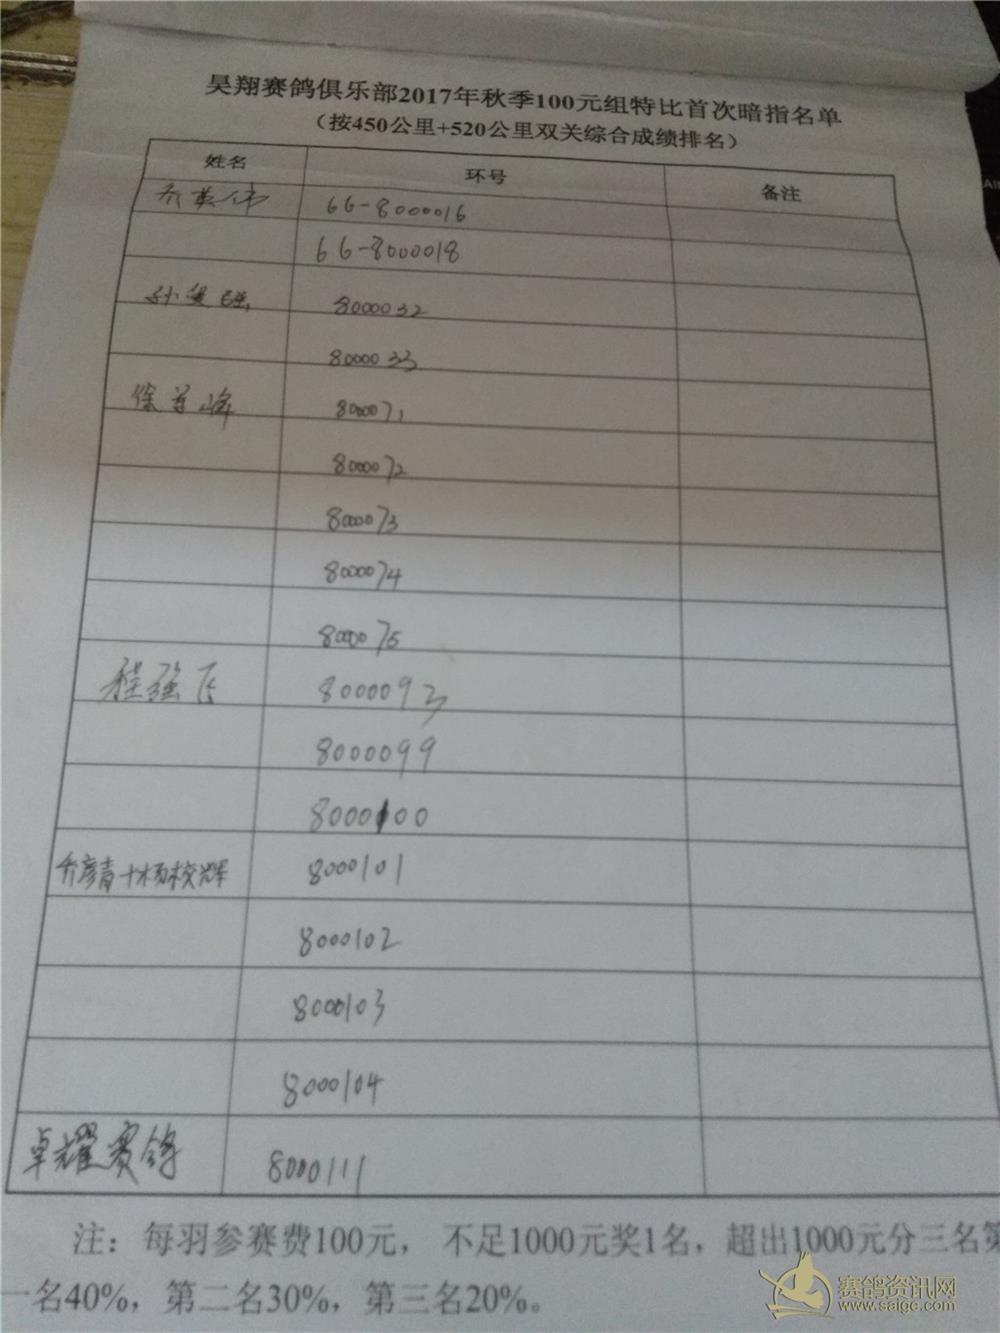 昊翔赛鸽俱乐部2017年秋季100元组特比首次暗指名单
（按450公里+520公里双关综合成绩排名）
姓名 环号 备注
乔英伟 66-8000016
66-8000018
8000032
8000033
8000071
8000072
8000073
8000074
8000075
程强飞 8000093
8000099
8000100
乔彦青+杨校辉 8000101
8000102
8000103
8000104
卓耀赛鸽 8000111
注：每羽参赛费100元， 不足1000元奖1名，超出1000元分三名第
一名40%，第二名30%，第三名20%。
赛鸽资讯网
www.saigc.com